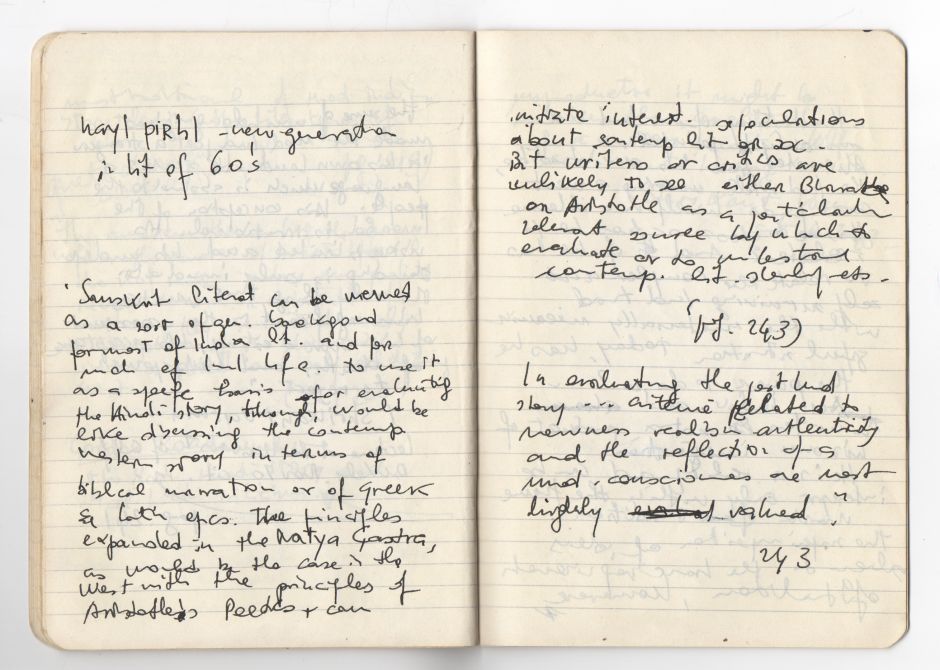 nayī pīRhī - new generation
in lit of 60s
'Sanskrit literat can be viewed
as a sort of gen. backgound
for most of India lt. and for
much of Ind life. To use it
as a specfc basis for evaluating
the Hindi story, though, would be
like dicussing the contemp
western story in terms of
biblical narration or of Greek
& latin epcs. The pinciples
expanded in the Natya Çastra,
as would be the case in the
West with the principles of
Aristotle's Poetics + can
initiate interest. speculations
about contemp lit or so.
Bt writers or critics are
unlikely to see either Bharat
or Aristotle as a particularly
relevant source by which to
evaluate or to understand
contemp. lit. sharply etc.
(pg. 243)
In evaluating the post Ind
story ... criteria related to
newness realism authenticity
and the reflection of a
mod. consciousnes are most
highly valued."
243